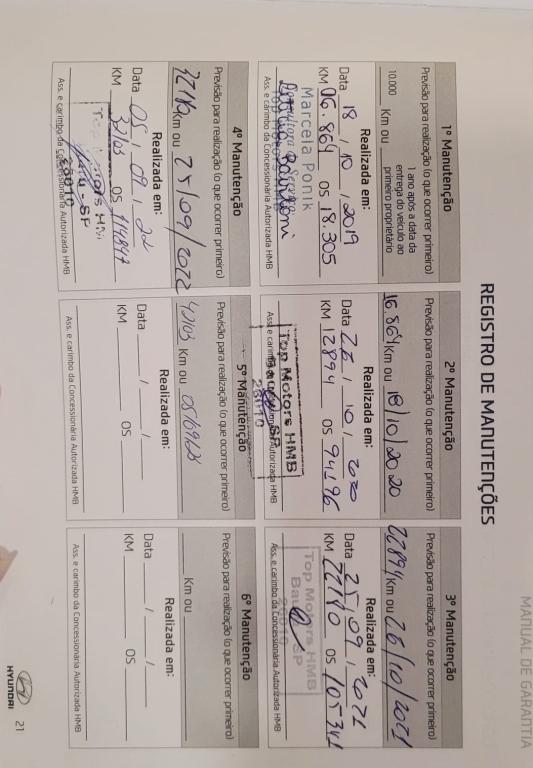 MANUAL DE GARANTIA
REGISTRO DE MANUTENÇÕES
1º Manutenção
Previsão para realização (o que ocorrer primeiro)
10.000 Km ou 1 ano após a data da
entrega do veículo ao
primeiro proprietário
Realizada em:
Data 18 / 10 / 2019
KM 06.864 OS 18.305
Marcela Ponik
Ass. e carimbo da Concessionária Autorizada HMB
2º Manutenção
Previsão para realização (o que ocorrer primeiro)
16.864 Km ou 18/10/2020
Realizada em:
Data 26 / 10 / 2020
KM 12894 OS 94196
Top Motors HMB
Bauru SP
26010
Ass. e carimbo da Concessionária Autorizada HMB
3º Manutenção
Previsão para realização (o que ocorrer primeiro)
22894 Km ou 26/10/2021
Realizada em:
Data 25 / 09 / 2021
KM 22180 OS 105341
Top Motors HMB
Bauru SP
26010
Ass. e carimbo da Concessionária Autorizada HMB
4º Manutenção
Previsão para realização (o que ocorrer primeiro)
32180 Km ou 25/09/2022
Realizada em:
Data 05 / 09 / 22
KM 32103 OS 114847
Top Motors HMB
Bauru SP
26010
Ass. e carimbo da Concessionária Autorizada HMB
5º Manutenção
Previsão para realização (o que ocorrer primeiro)
42103 Km ou 05/09/23
Realizada em:
Data / /
KM OS
Ass. e carimbo da Concessionária Autorizada HMB
6º Manutenção
Previsão para realização (o que ocorrer primeiro)
Km ou
Realizada em:
Data / /
KM OS
Ass. e carimbo da Concessionária Autorizada HMB
HYUNDAI
21